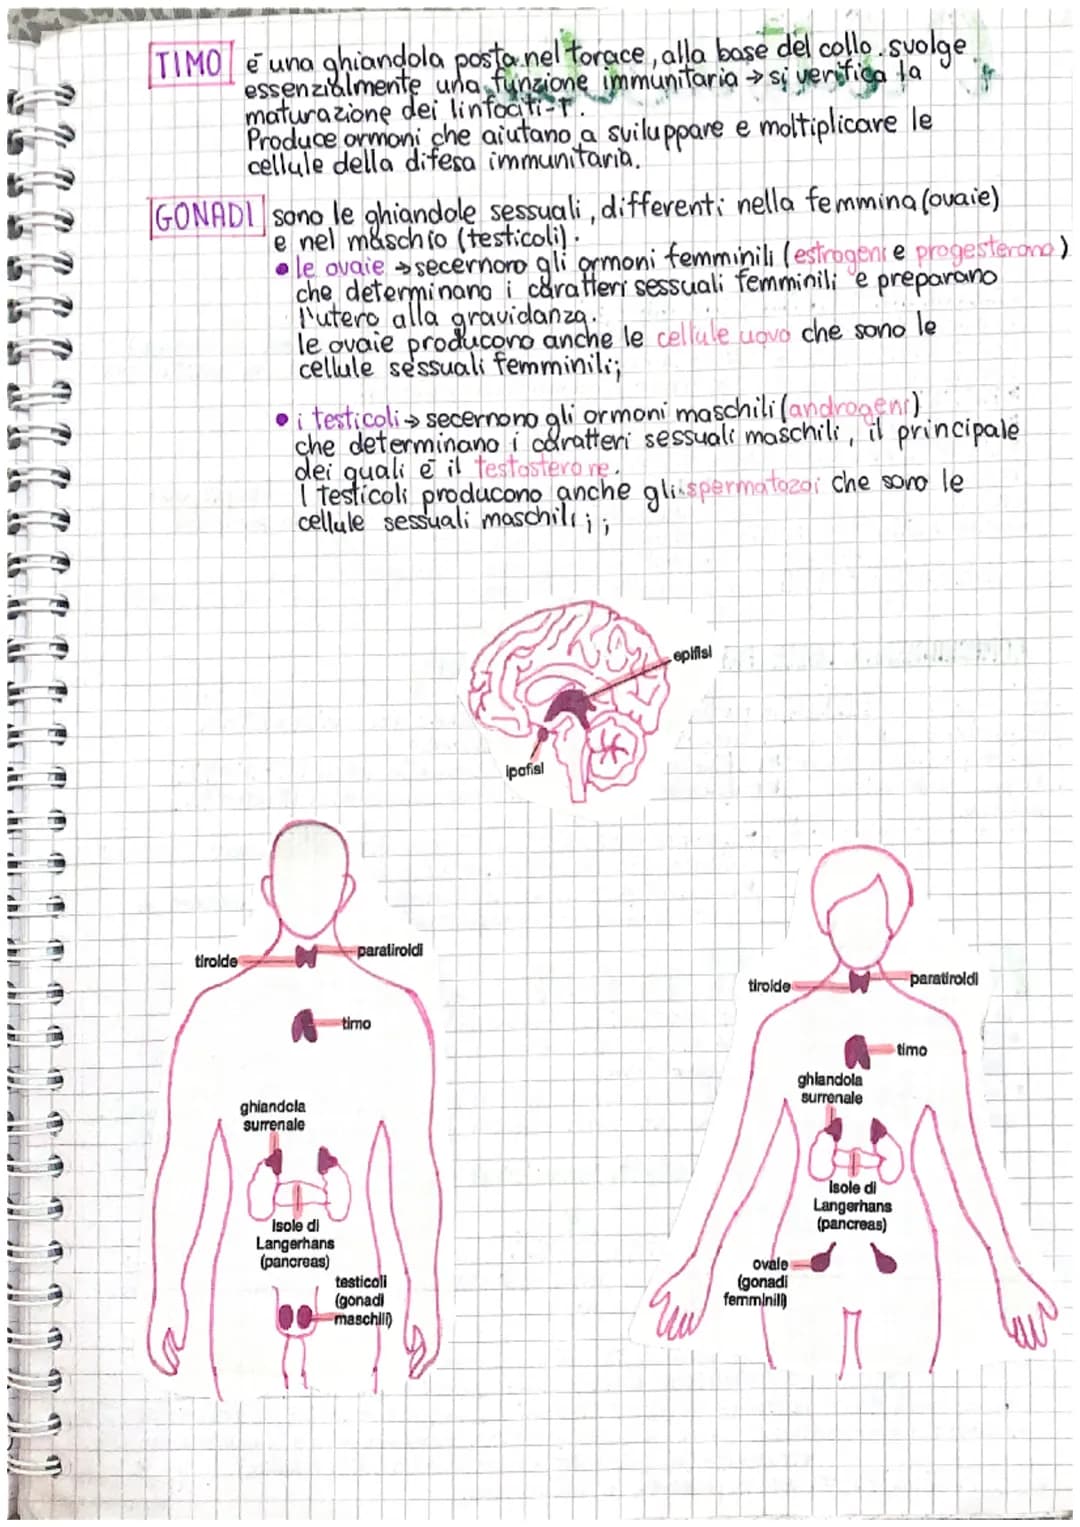 TIMO è una ghiandola posta nel torace, alla base del collo. svolge
essenzialmente una funzione immunitaria → si verifica la
maturazione dei linfociti-T.
Produce ormoni che aiutano a sviluppare e moltiplicare le
cellule della difesa immunitaria.
GONADI sono le ghiandole sessuali, differenti nella femmina (ovaie)
e nel maschio (testicoli).
• le ovaie → secernono gli ormoni femminili (estrogeni e progesterone)
che determinano i caratteri sessuali femminili e preparano
l'utero alla gravidanza.
le ovaie producono anche le cellule uovo che sono le
cellule sessuali femminili;
• i testicoli → secernono gli ormoni maschili (androgeni)
che determinano i caratteri sessuali maschili, il principale
dei quali è il testosterone.
I testicoli producono anche gli spermatozoi che sono le
cellule sessuali maschili;;
epifisi
ipofisi
tiroide
paratiroidi
timo
ghiandola
surrenale
Isole di
Langerhans
(pancreas)
testicoli
(gonadi
maschili)
tiroide
paratiroidi
timo
ghiandola
surrenale
Isole di
Langerhans
(pancreas)
ovaie
(gonadi
femminili)